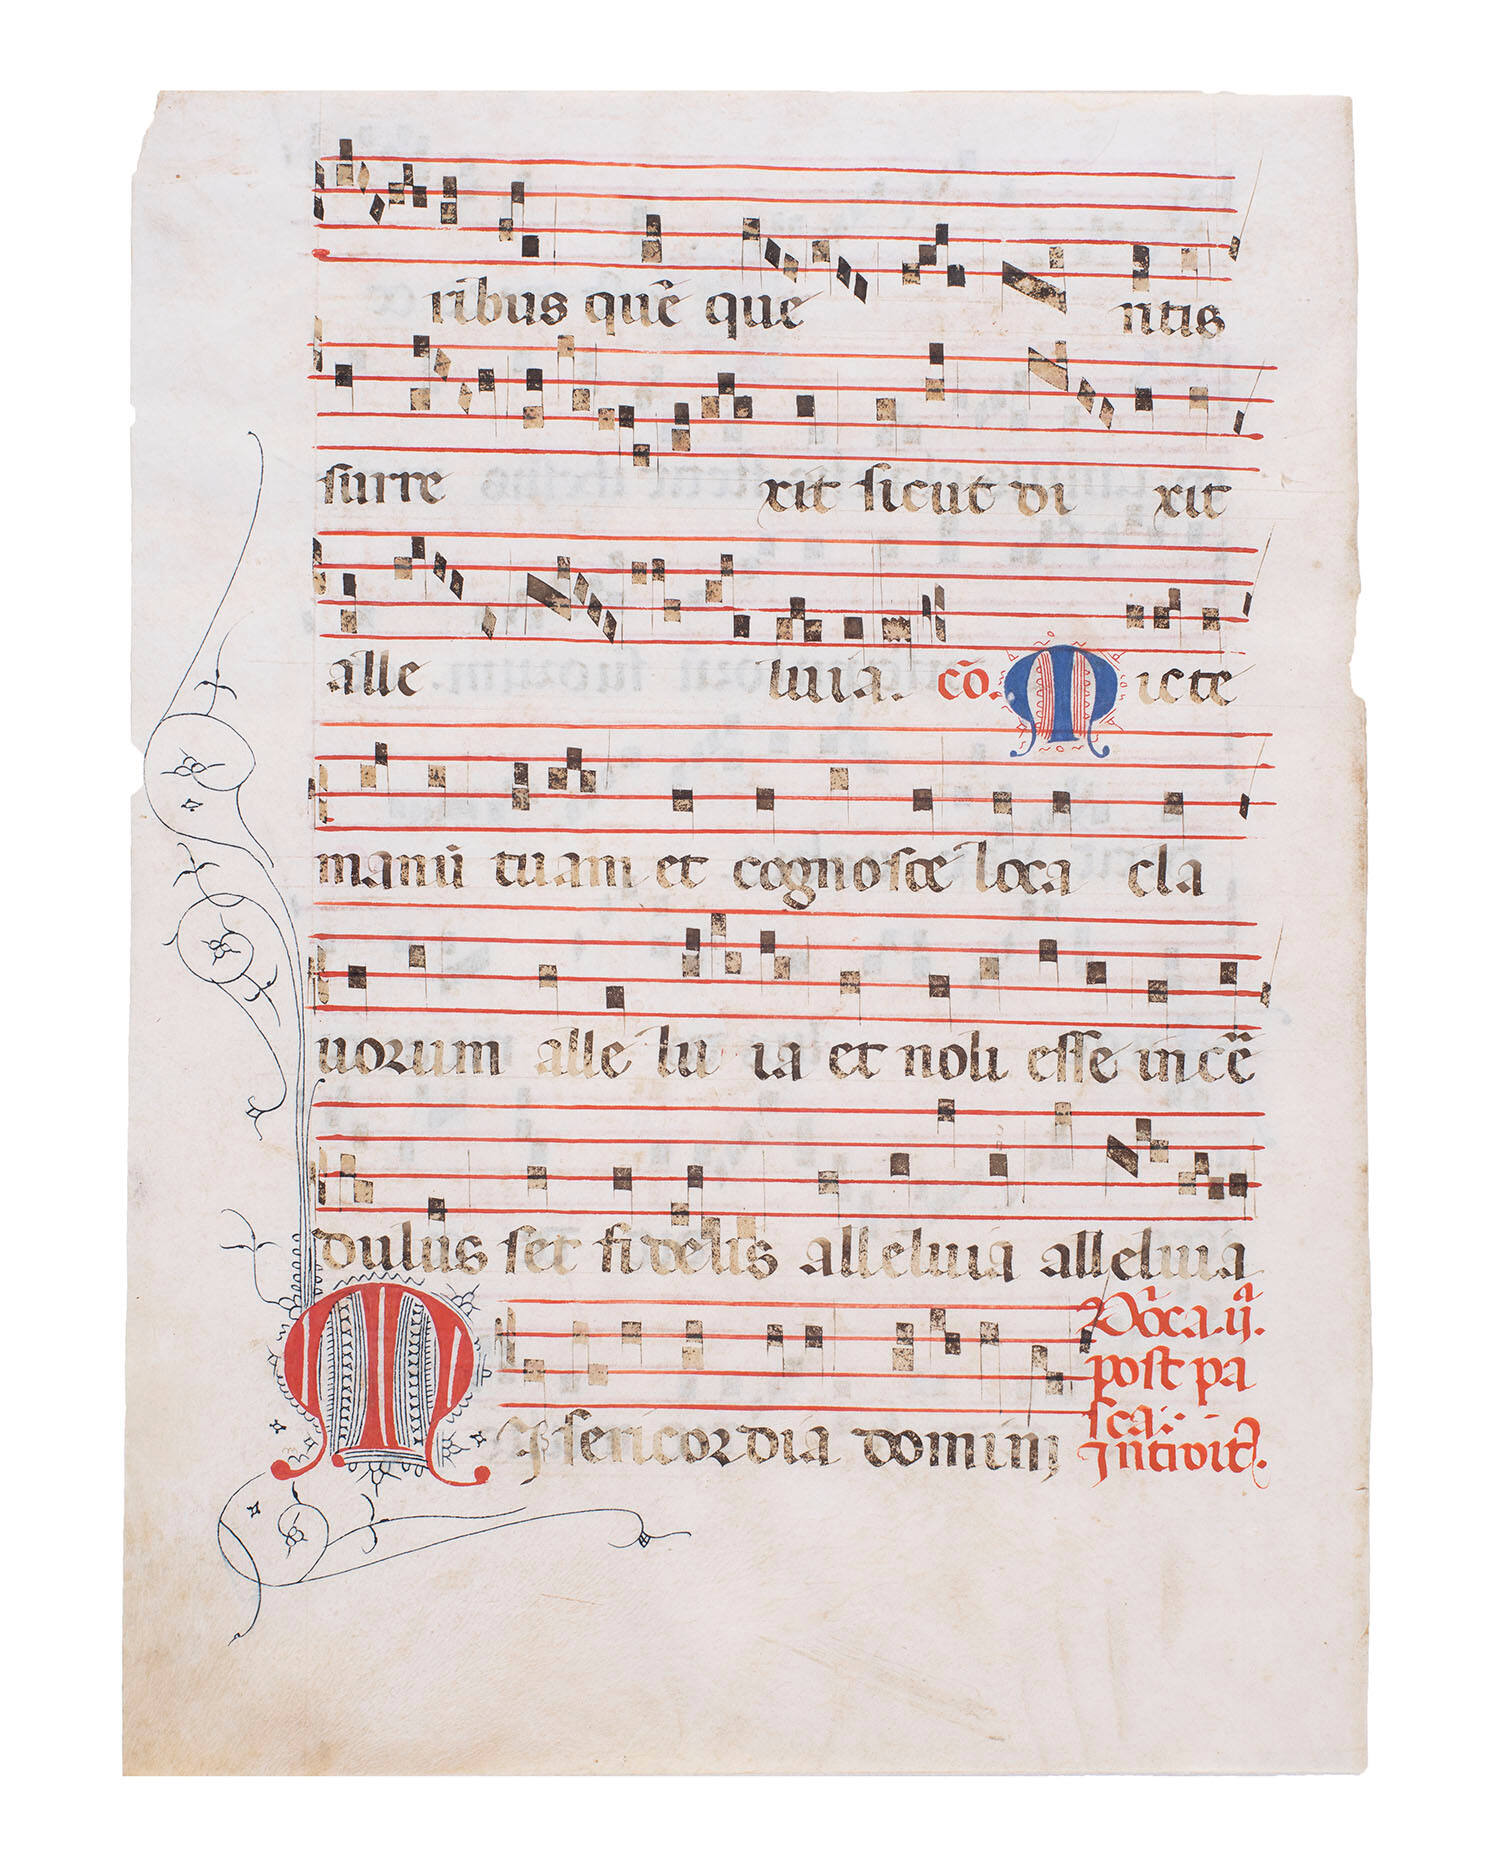 ribus quē que ritis
surre xit sicut di xit
alle luia. cō. Micte
manū tuam et cognosce loca cla
uorum alle lu ia et noli esse incē
dulus set fidelis alleluia alleluia
MIsericordia domini
Dōca .ij.
post pa
sca:
Introit.